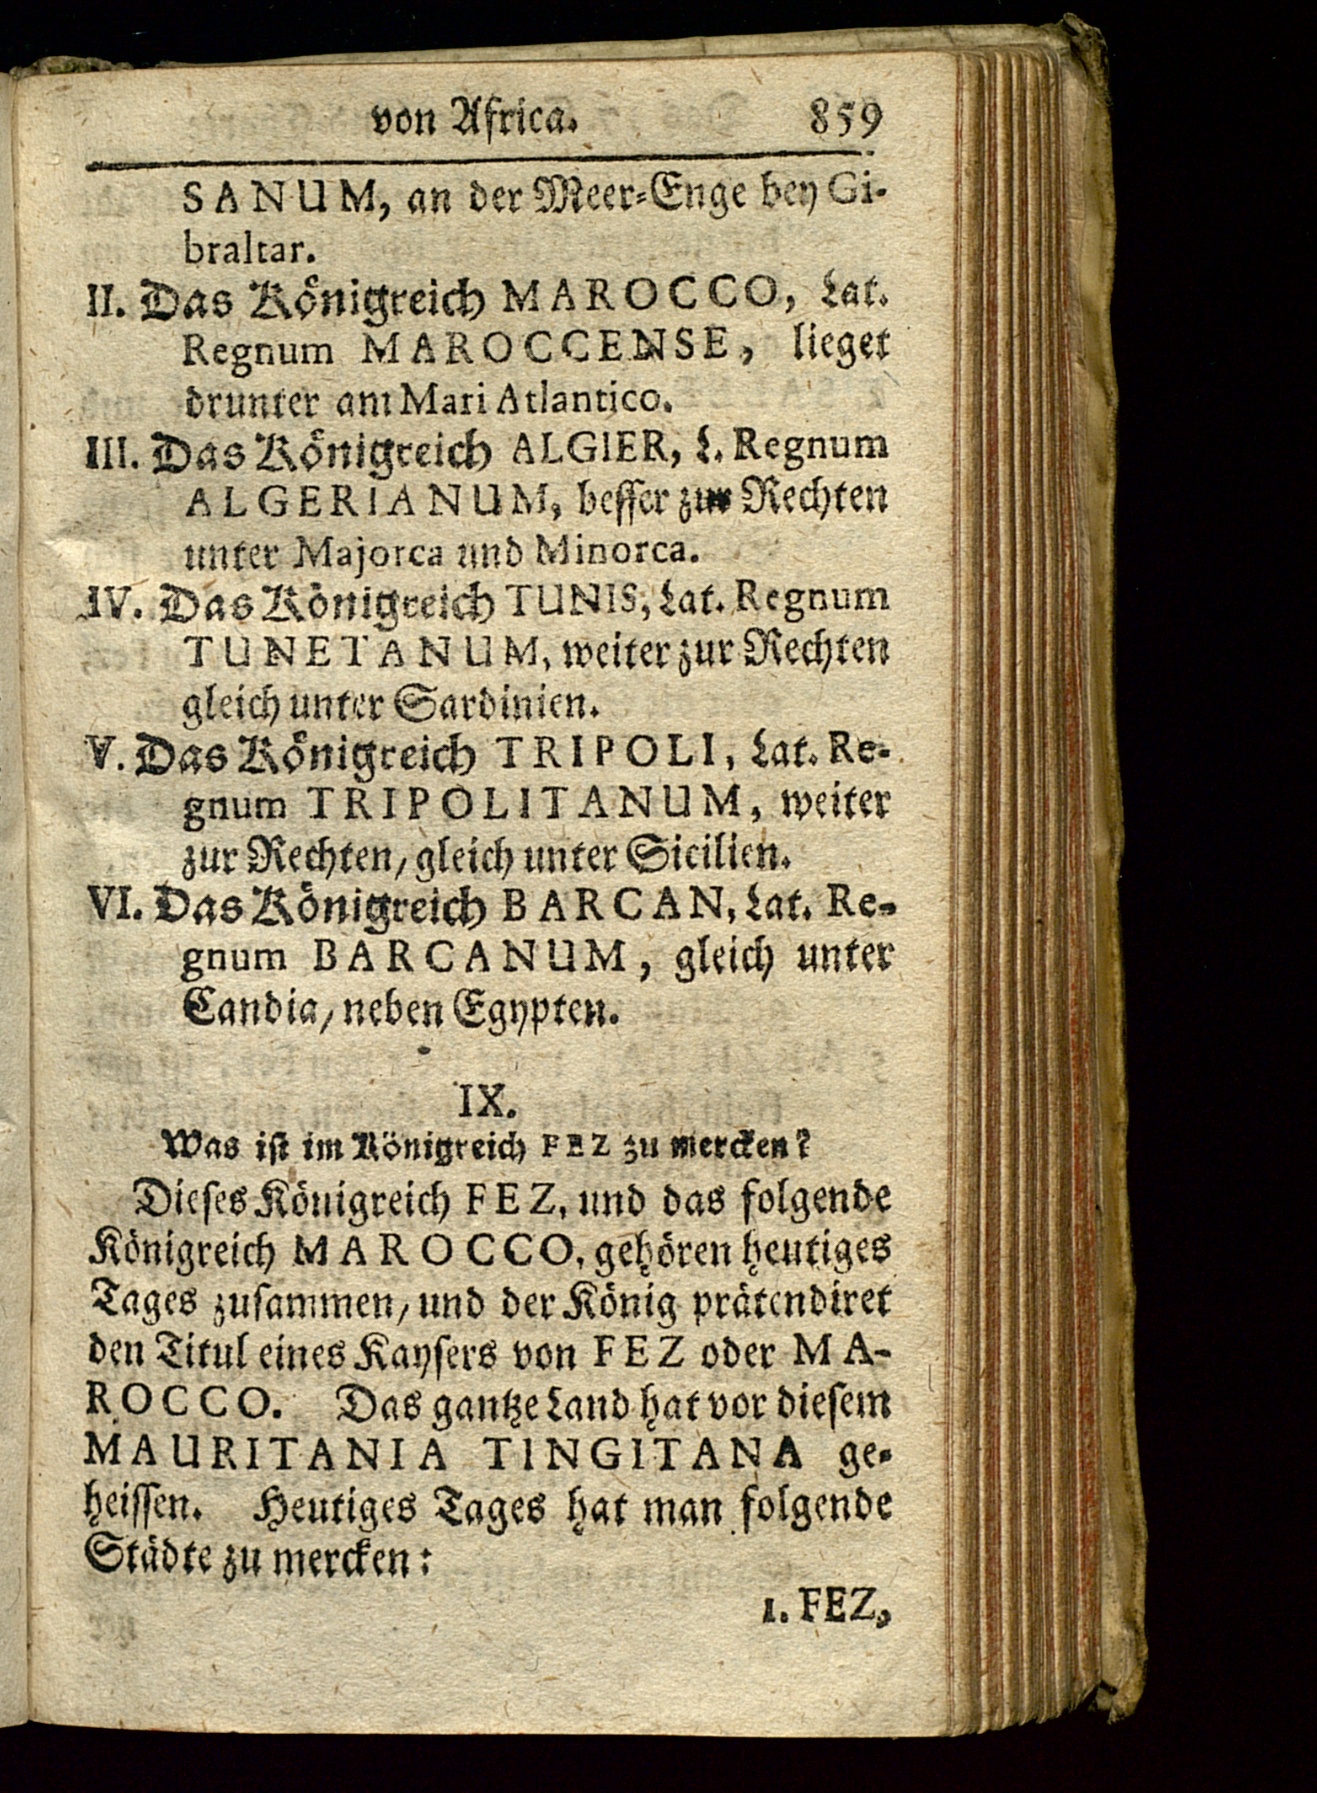 von Africa. 859
SANUM, an der Meer-Enge bey Gi-
braltar.
II. Das Königreich MAROCCO, Lat.
Regnum MAROCCENSE, lieget
drunter am Mari Atlantico.
III. Das Königreich ALGIER, L. Regnum
ALGERIANUM, besser zur Rechten
unter Majorca und Minorca.
IV. Das Königreich TUNIS, Lat. Regnum
TUNETANUM, weiter zur Rechten
gleich unter Sardinien.
V. Das Königreich TRIPOLI, Lat. Re-
gnum TRIPOLITANUM, weiter
zur Rechten, gleich unter Sicilien.
VI. Das Königreich BARCAN, Lat. Re-
gnum BARCANUM, gleich unter
Candia, neben Egypten.
IX.
Was ist im Königreich FEZ zu mercken?
Dieses Königreich FEZ, und das folgende
Königreich MAROCCO, gehören heutiges
Tages zusammen, und der König prätendiret
den Titul eines Kaysers von FEZ oder MA-
ROCCO. Das gantze Land hat vor diesem
MAURITANIA TINGITANA ge-
heissen. Heutiges Tages hat man folgende
Städte zu mercken:
1. FEZ,